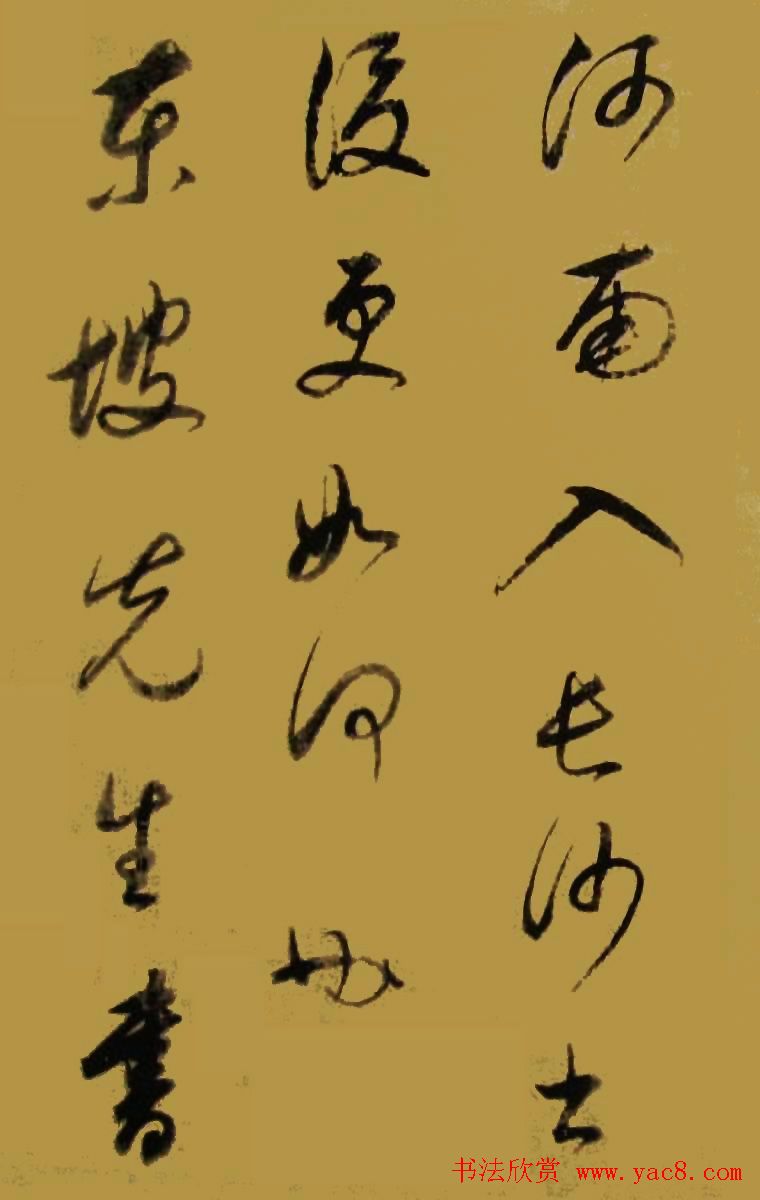 河南入長沙
後更如何也
東坡先生書
书法欣赏 www.yac8.com